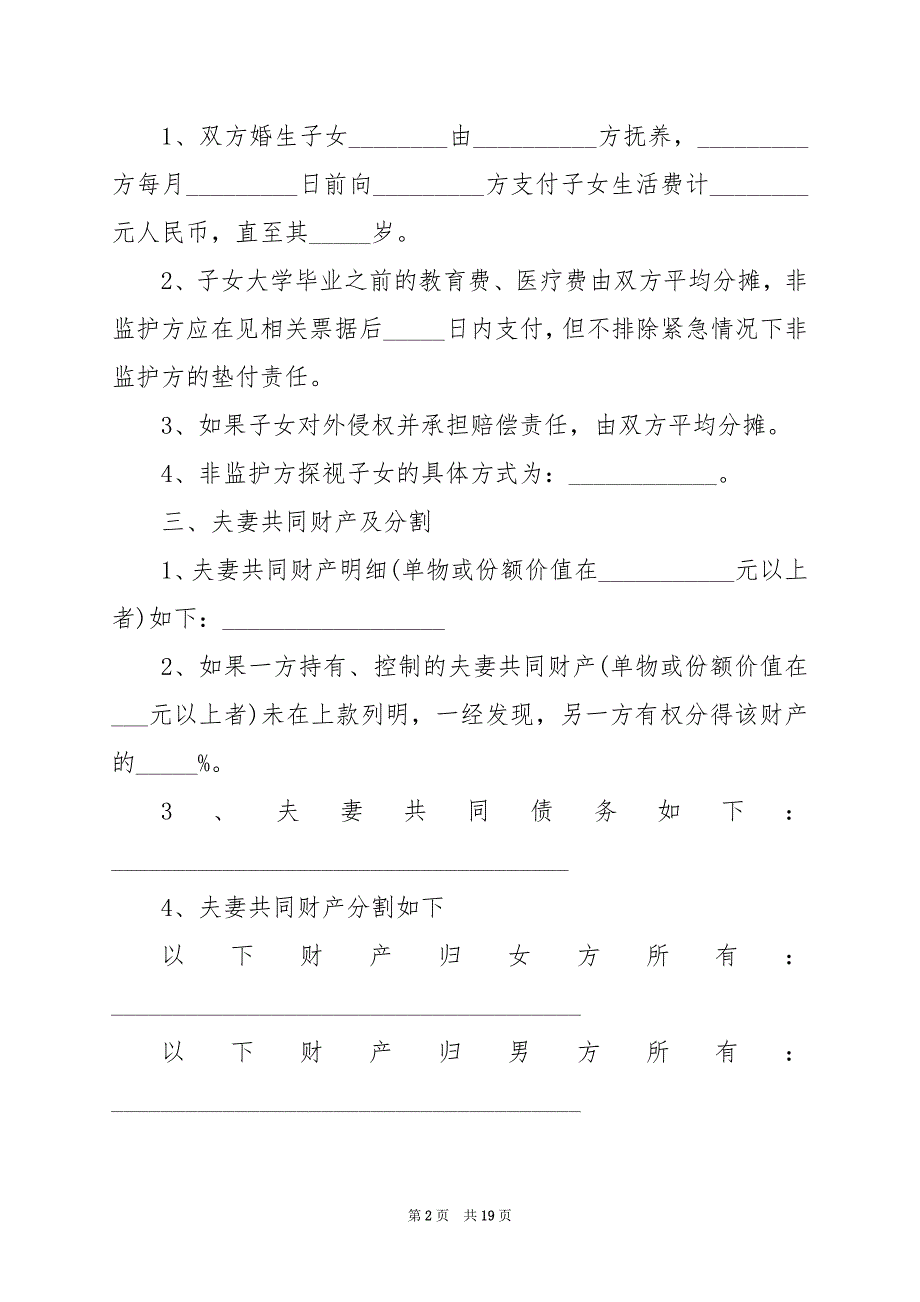 1、双方婚生子女________由__________方抚养，_________
方每月_________日前向_________方支付子女生活费计________
元人民币，直至其_____岁。
2、子女大学毕业之前的教育费、医疗费由双方平均分摊，非
监护方应在见相关票据后_____日内支付，但不排除紧急情况下非
监护方的垫付责任。
3、如果子女对外侵权并承担赔偿责任，由双方平均分摊。
4、非监护方探视子女的具体方式为：____________。
三、夫妻共同财产及分割
1、夫妻共同财产明细(单物或份额价值在___________元以上
者)如下：__________________
2、如果一方持有、控制的夫妻共同财产(单物或份额价值在
___元以上者)未在上款列明，一经发现，另一方有权分得该财产
的_____%。
3、夫妻共同债务如下：
_____________________________________
4、夫妻共同财产分割如下
以下财产归女方所有：
______________________________________
以下财产归男方所有：
______________________________________
第 2 页 共 19 页